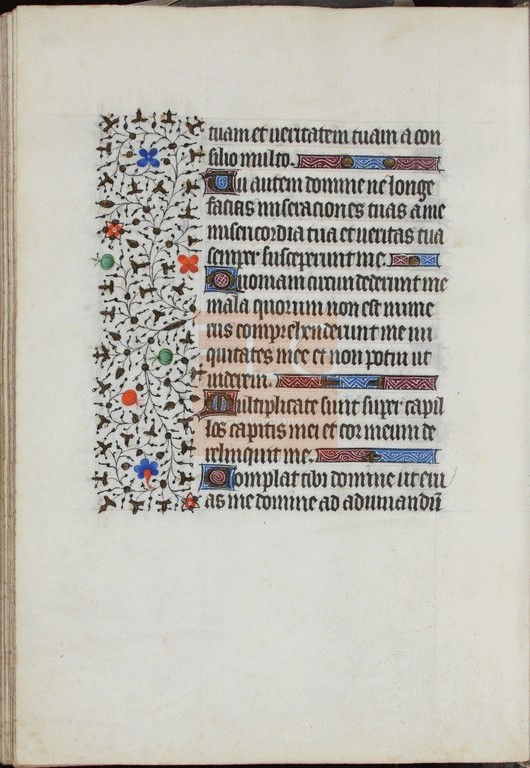 tuam et ueritatem tuam a con
silio multo.
Tu autem domine ne longe
facias miserationes tuas a me
misericordia tua et ueritas tua
semper susceperunt me.
Quoniam circumdederunt me
mala quorum non est nume
rus comprehenderunt me ini
quitates mee et non potui ut
uiderem.
Multiplicate sunt super capil
los capitis mei et cor meum de
relinquit me.
Complat tibi domine ut eru
as me domine ad adiuuandū